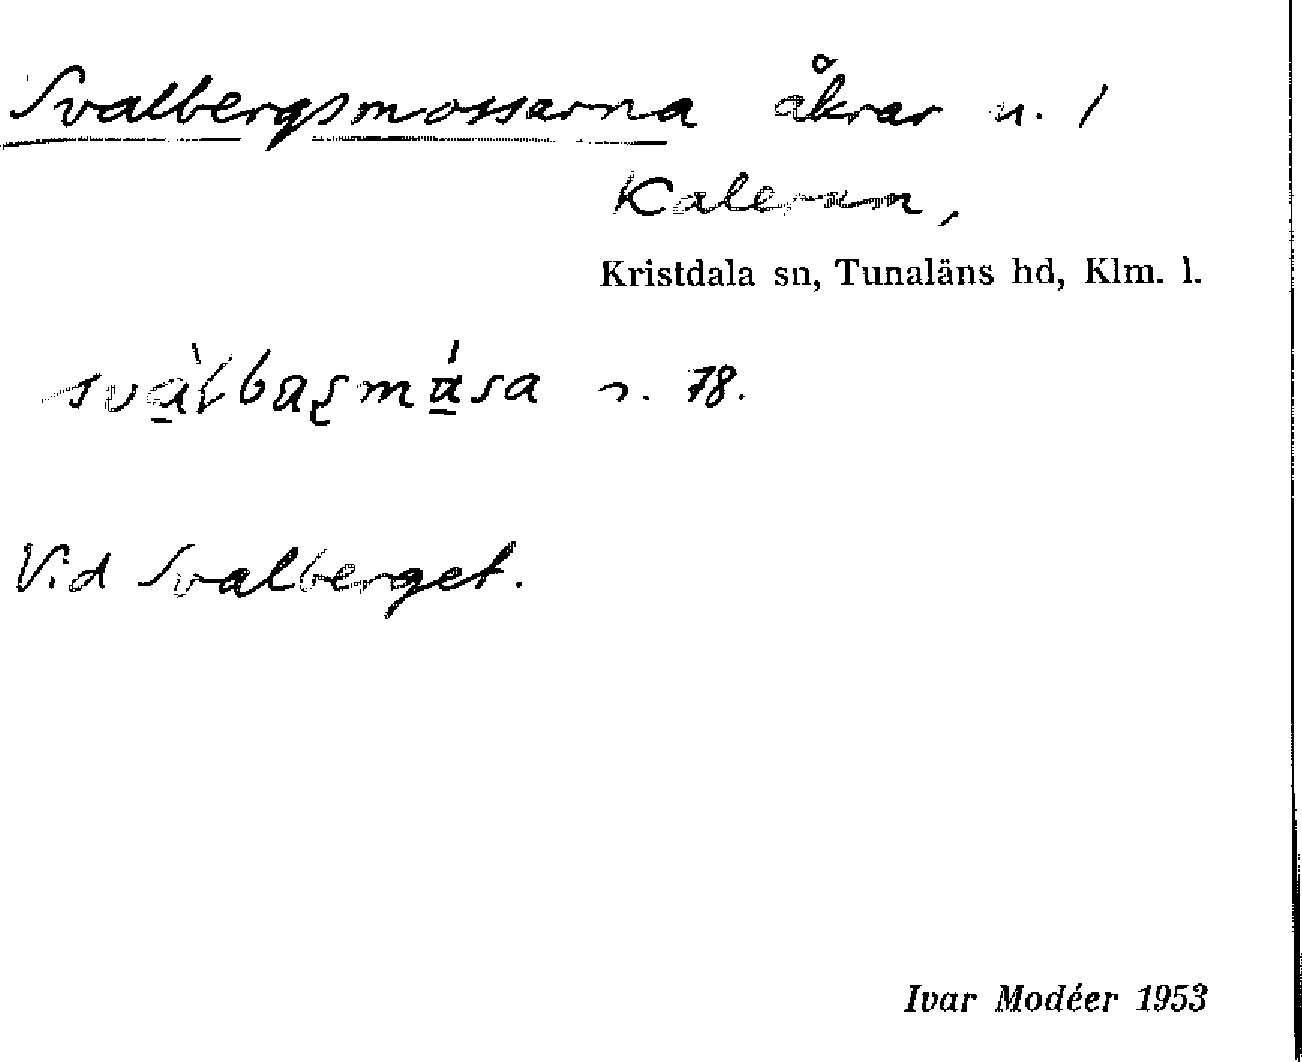 Svalbergsmossarna åkrar u. 1
Kalerum,
Kristdala sn, Tunaläns hd, Klm. l.
s. 78.
Vid Svalberget.
Ivar Modéer 1953